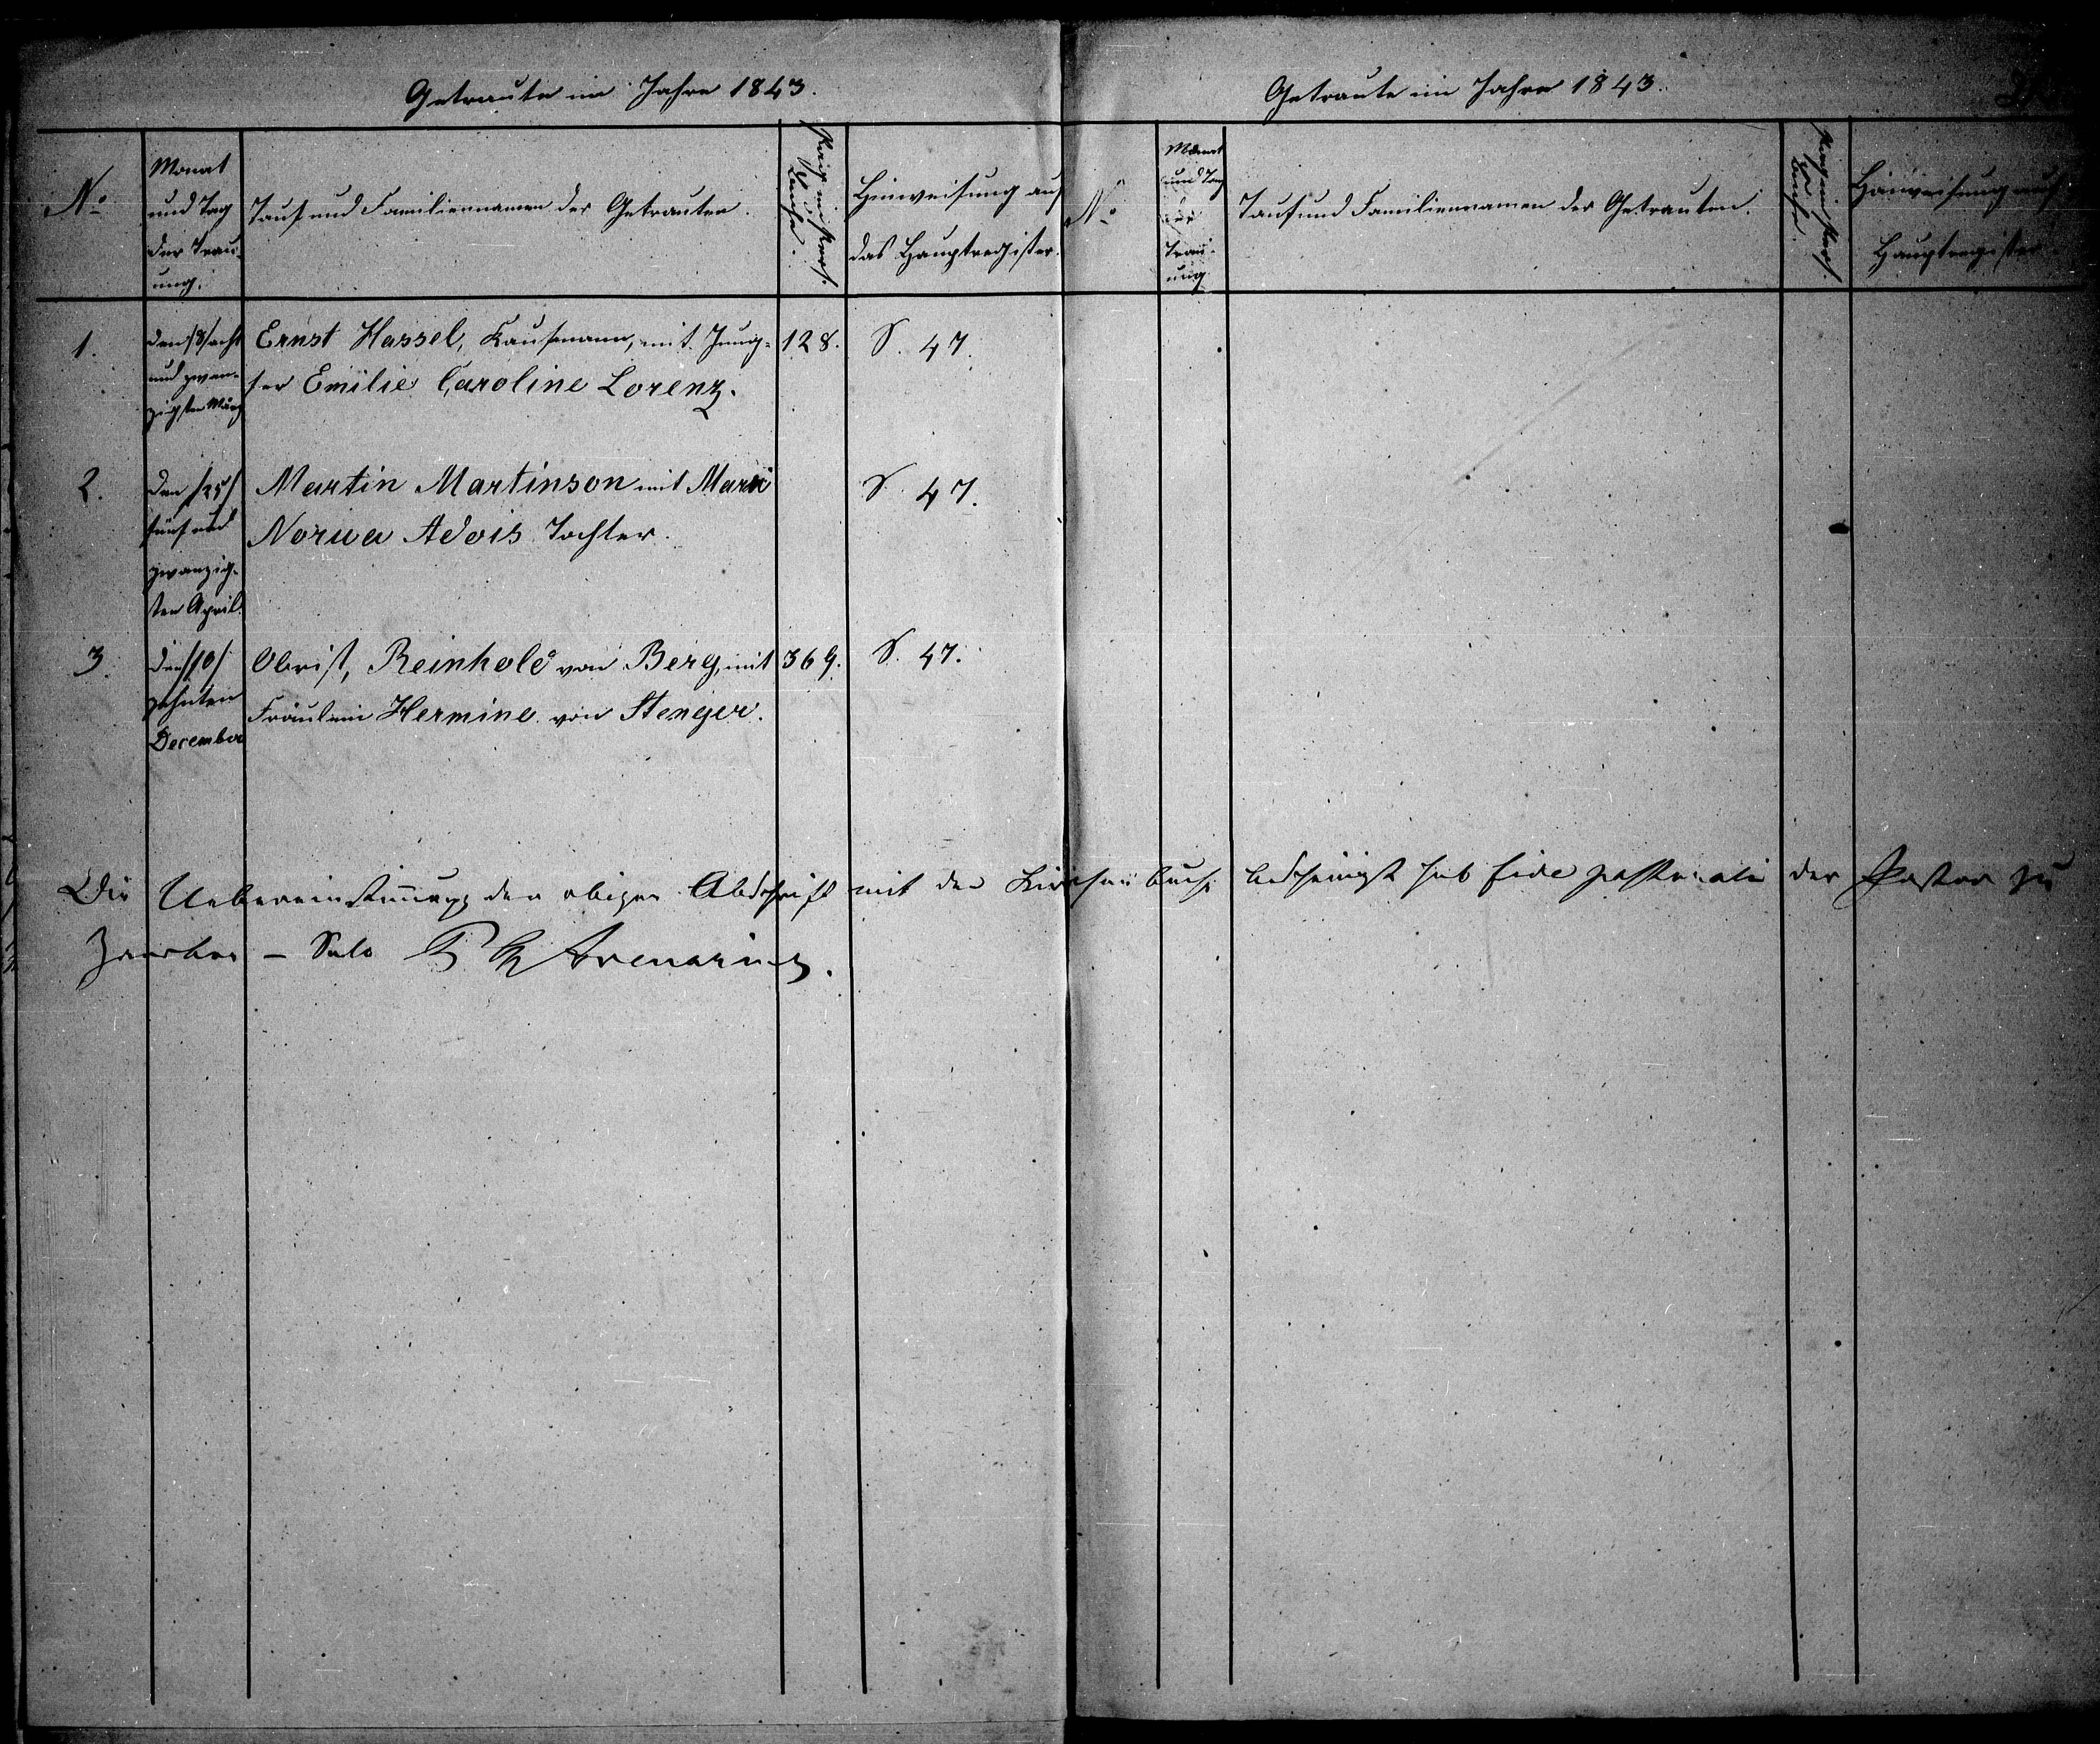 Getraute im Jahre 1843.
No
Monat
und Tag
der Trau-
ung.
Tauf und Familiennamen der Getrauten.
Hinweisung auf
das Hauptregister.
1.
den /28/ acht
und zwan-
zigsten März
Ernst Hassel, Kaufmann, mit Jung-
fer Emilie Caroline Lorenz.
128.
S. 47.
2.
den /25/
fünf und
zwanzig-
sten April.
Martin Martinson mit Marri
Norwa Adois Tochter.
S. 47.
3.
den /10/
zehnten
December
Obrist, Reinhold von Berg, mit
Fräulein Hermine von Stenger.
369.
S. 47.
Getraute im Jahre 1843.
No
Monat
und Tag
der
Trau-
ung
Tauf und Familiennamen der Getrauten.
Hinweisung auf
Hauptregister
Die Uebereinstimmung der obigen Abschrift mit dem Kirchenbuche bescheinigt sub fide pastorali der Pastor zu
Zarskoe-Selo Avenarius.